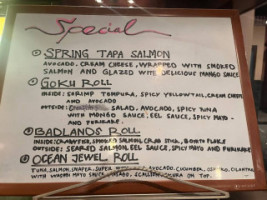 Special
① SPRING TAPA SALMON
AVOCADO, CREAM CHEESE, WRAPPED WITH SMOKED
SALMON AND GLAZED WITH DELICIOUS MANGO SAUCE
② GOKU ROLL
INSIDE: SHRIMP TEMPURA, SPICY YELLOWTAIL, CREAM CHEESE
AND AVOCADO
OUTSIDE: SALAD, AVOCADO, SPICY TUNA
WITH MONGO SAUCE, EEL SAUCE, SPICY MAYO
AND FURIKAKE.
③ BADLANDS ROLL
INSIDE: CRAWFISH, CRAB STICK, BONITO FLAKES
OUTSIDE: SEARED SALMON, EEL SAUCE, SPICY MAYO AND FURIKAKE
④ OCEAN JEWEL ROLL
TUNA, SALMON, SNAPER, SUPER WHITE, AVOCADO, CUCUMBER, CILANTRO
WITH MAYO SAUCE, ON TOP.